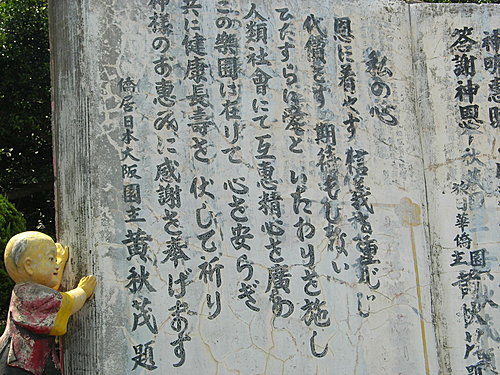 答謝神恩
華僑園主
私の心
恩に着せず 信義を重んじ
代償をす 期待もしない
ひたすらに愛と いたわりを施し
人類社會にて互惠精心を廣め
この樂園は在りて 心を安らぎ
共に健康長壽を 伏して祈り
神様のお惠みに感謝を奉げます
僑居日本大阪園主 黄秋茂 題